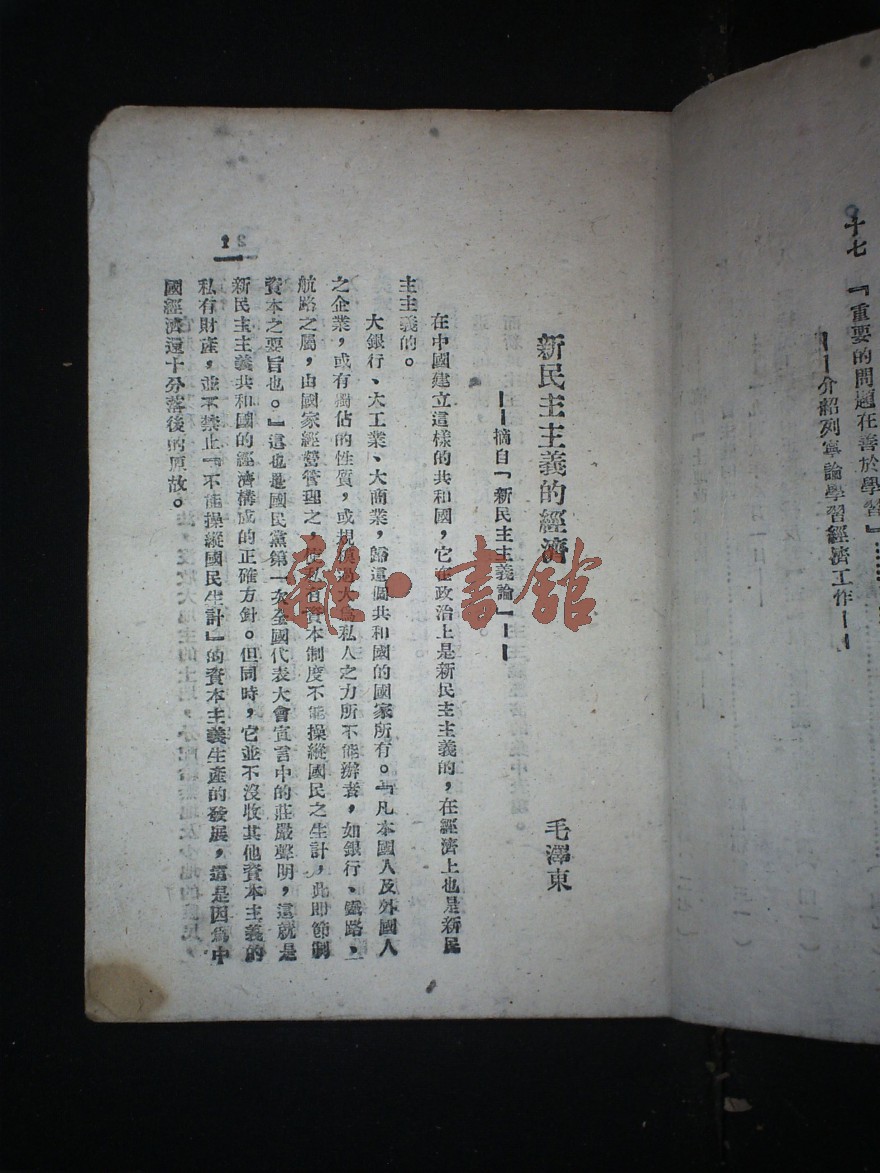 十七 『重要的問題在善於學習』…………
——介紹列寧論學習經濟工作——
新民主主義的經濟
毛澤東
——摘自「新民主主義論」——
在中國建立這樣的共和國，它在政治上是新民主主義的，在經濟上也是新民
主主義的。
大銀行、大工業、大商業，歸這個共和國的國家所有。『凡本國人及外國人
之企業，或有獨佔的性質，或規模過大爲私人之力所不能辦者，如銀行、鐵路、
航路之屬，由國家經營管理之，使私有資本制度不能操縱國民之生計，此即節制
資本之要旨也。』這也是國民黨第一次全國代表大會宣言中的莊嚴聲明，這就是
新民主主義共和國的經濟構成的正確方針。但同時，它並不沒收其他資本主義的
私有財產，並不禁止『不能操縱國民生計』的資本主義生產的發展，這是因爲中
國經濟還十分落後的原故。
1
龍·書館